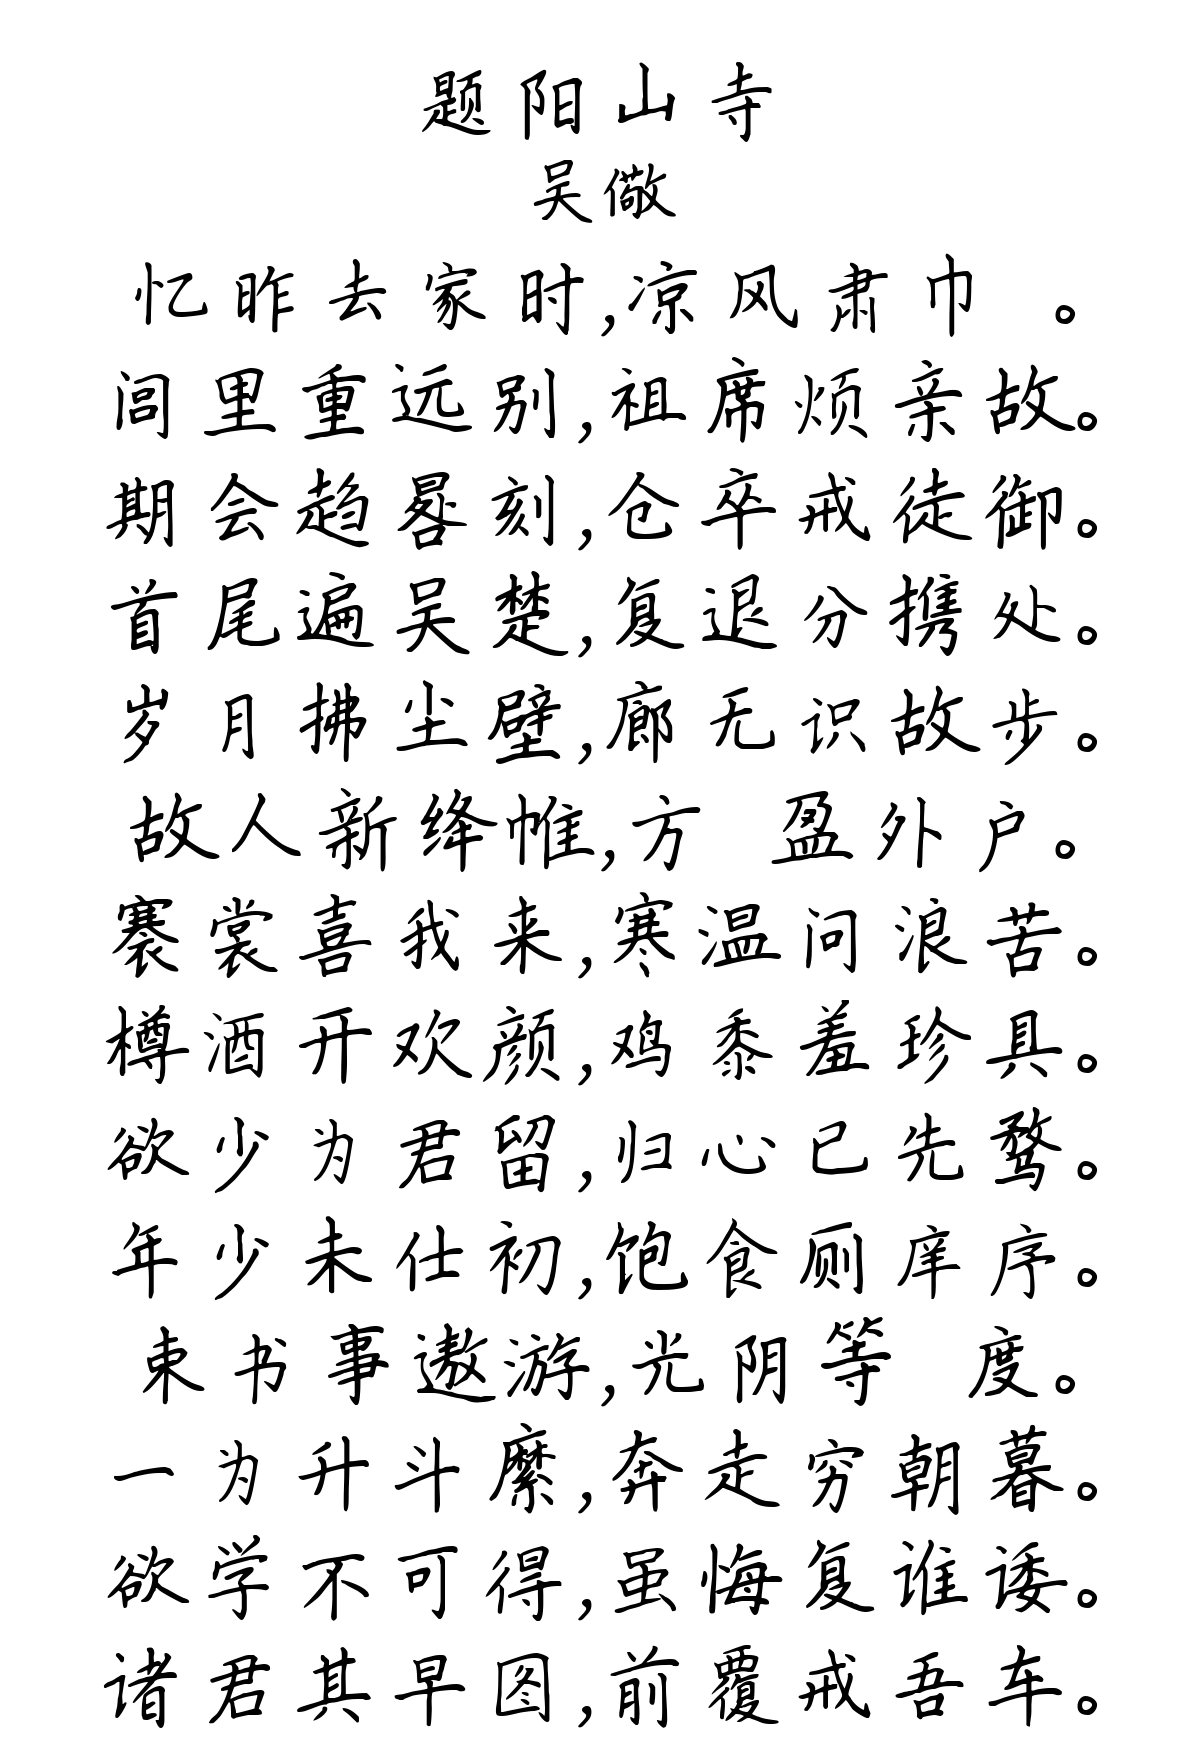 题阳山寺
吴儆
忆昨去家时,凉风肃巾 。
闾里重远别,祖席烦亲故。
期会趋晷刻,仓卒戒徒御。
首尾遍吴楚,复退分携处。
岁月拂尘壁,廊无识故步。
故人新绛帷,方 盈外户。
褰裳喜我来,寒温问浪苦。
樽酒开欢颜,鸡黍羞珍具。
欲少为君留,归心已先骛。
年少未仕初,饱食厕庠序。
束书事遨游,光阴等 度。
一为升斗縻,奔走穷朝暮。
欲学不可得,虽悔复谁诿。
诸君其早图,前覆戒吾车。